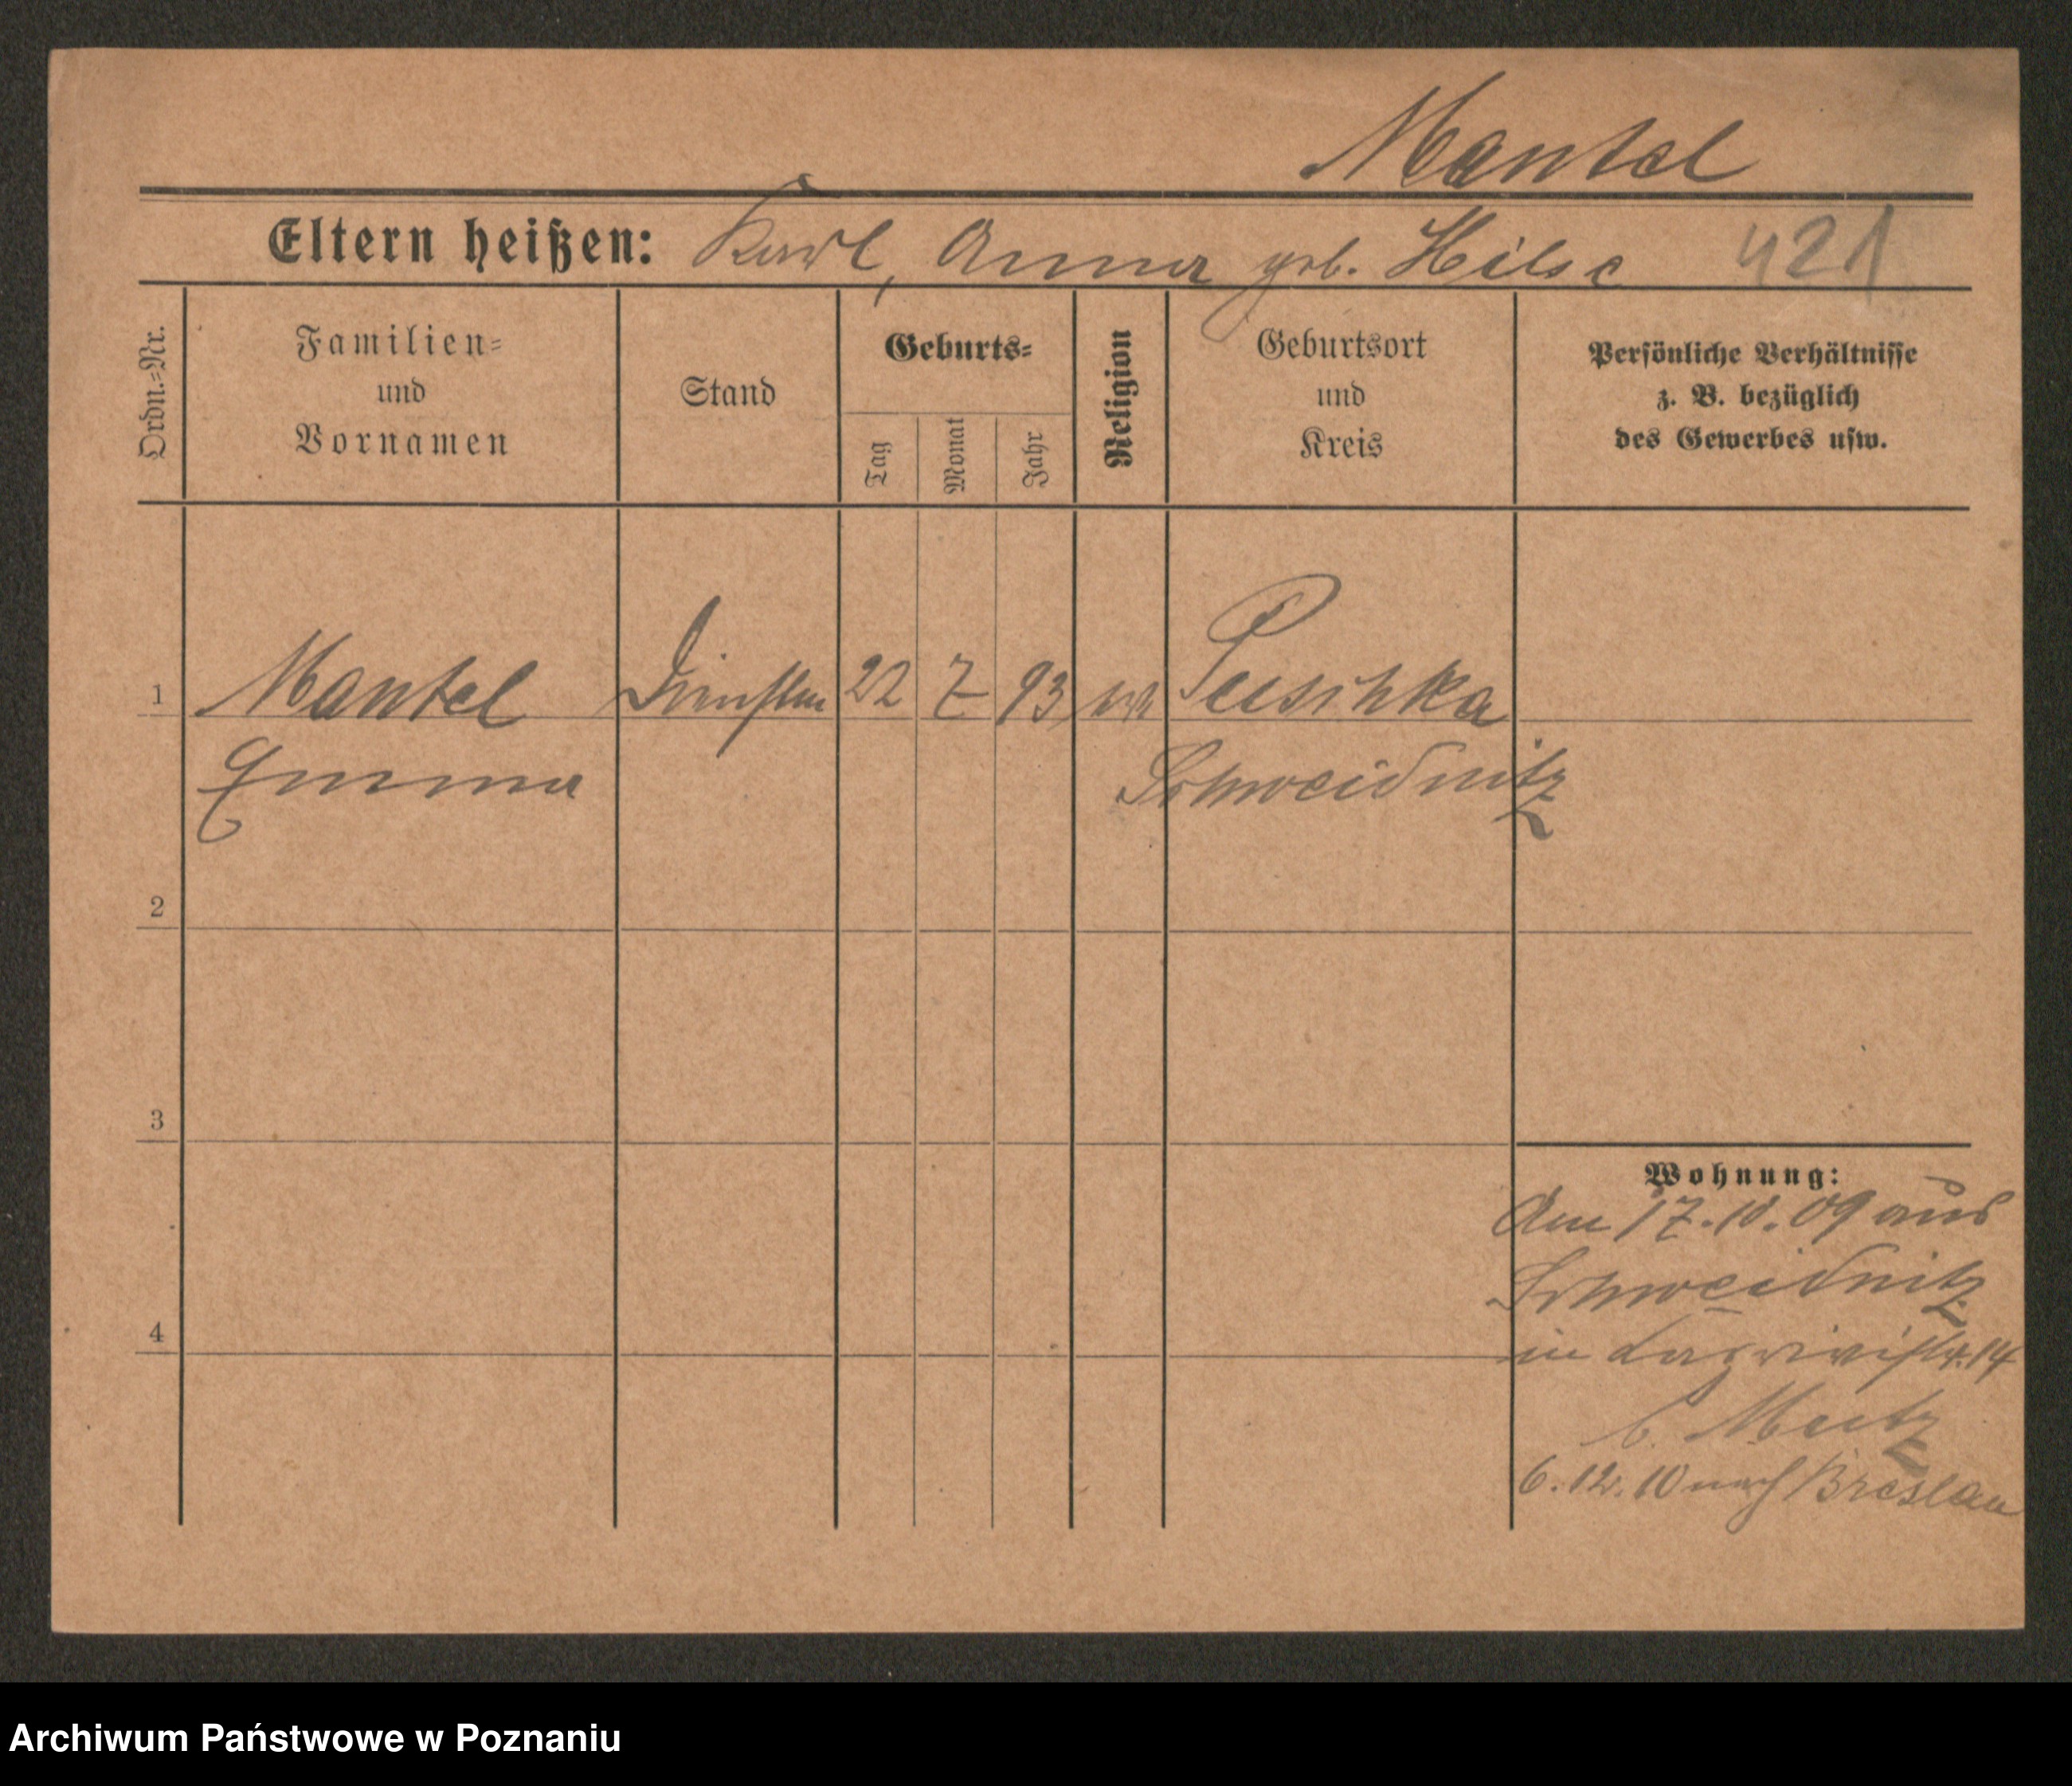 Mantel
Eltern heißen: Karl, Anna geb. Hilse 421
Ordn.=Nr.
Familien=
und
Vornamen
Stand
Geburts=
Tag
Monat
Jahr
Religion
Geburtsort
und
Kreis
Persönliche Verhältnisse
z. B. bezüglich
des Gewerbes usw.
1 Mantel 22 7 93 Puschka
Emma Schweidnitz
2
3
4
Wohnung:
Am 17.10.09 aus
Schweidnitz
in 14
b.
6.12.10 nach Breslau
Archiwum Państwowe w Poznaniu